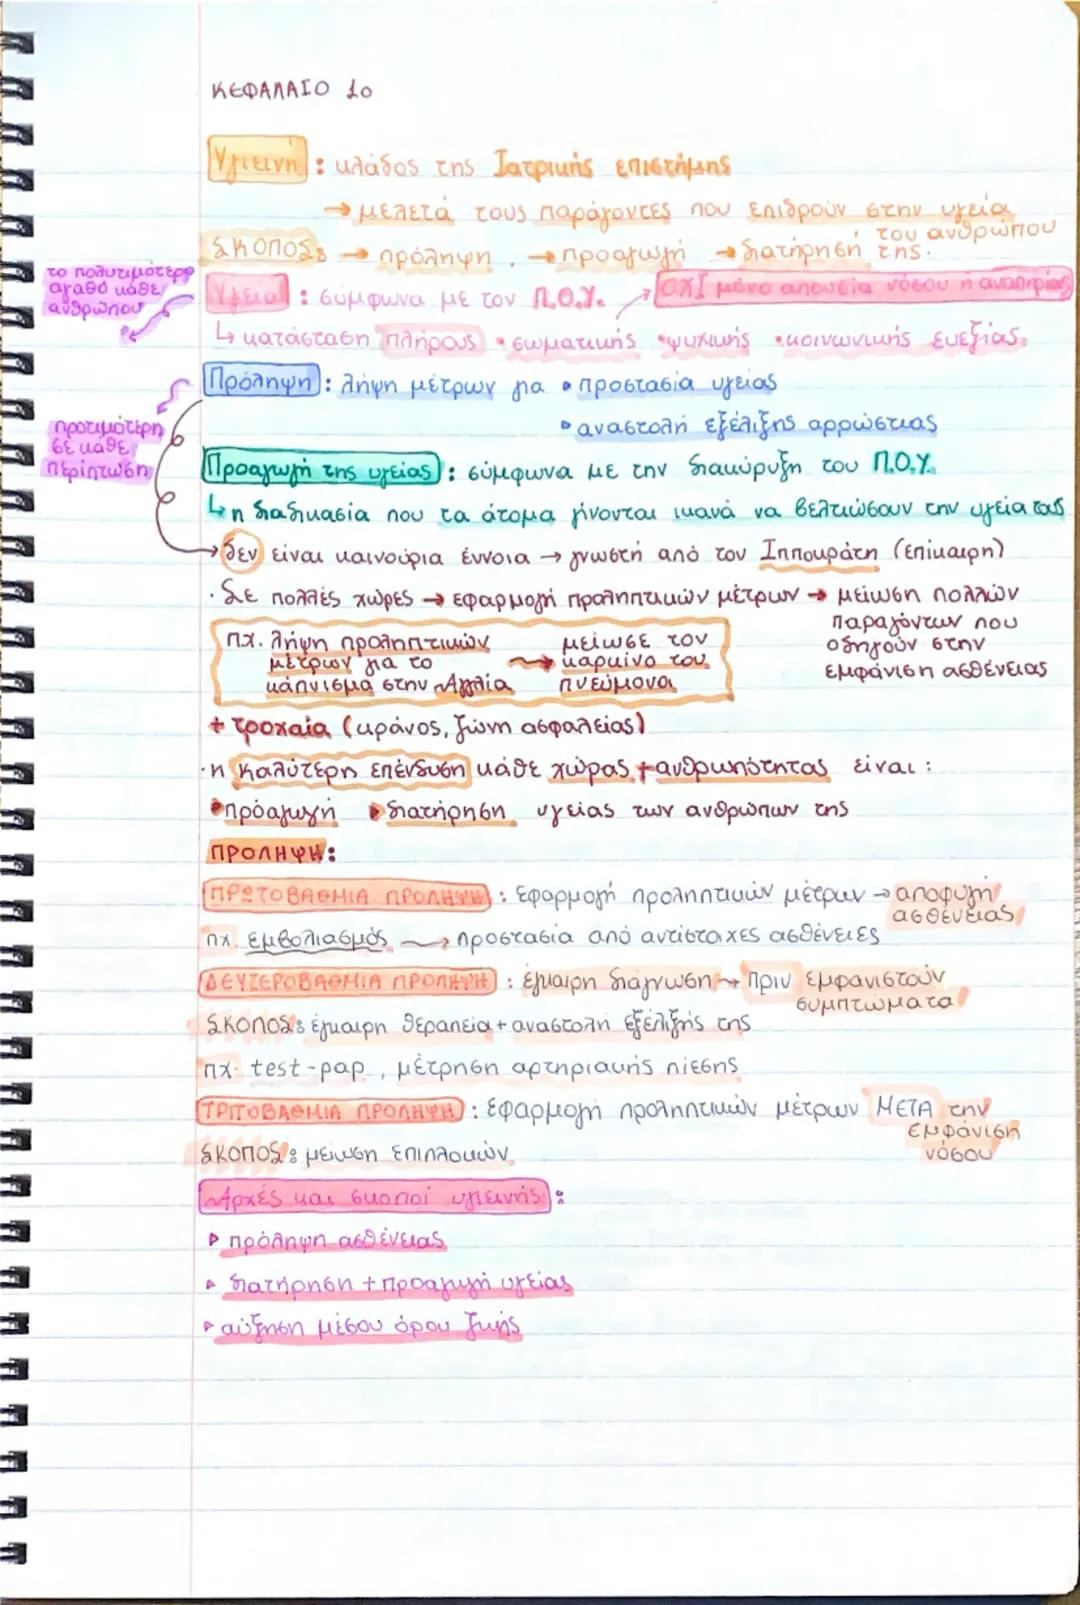 ΚΕΦΑΛΑΙΟ 1ο
Υγιεινή : κλάδος της Ιατρικής επιστήμης
→ μελετά τους παράγοντες που επιδρούν στην υγεία
του ανθρώπου
ΣΚΟΠΟΣ: → πρόληψη → προαγωγή → διατήρησή της.
το πολυτιμότερο
αγαθό κάθε
ανθρώπου
Υγεία : σύμφωνα με τον Π.Ο.Υ. ↗ ΟΧΙ μόνο απουσία νόσου ή αναπηρίας
↳ κατάσταση πλήρους • σωματικής • ψυχικής • κοινωνικής ευεξίας.
Πρόληψη : λήψη μέτρων για • προστασία υγείας
• αναστολή εξέλιξης αρρώστιας
προτιμότερη
σε κάθε
περίπτωση
Προαγωγή της υγείας : σύμφωνα με την διακύρυξη του Π.Ο.Υ.
↳ η διαδικασία που τα άτομα γίνονται ικανά να βελτιώσουν την υγεία τους
→ δεν είναι καινούρια έννοια → γνωστή από τον Ιπποκράτη (επίκαιρη)
· Σε πολλές χώρες → εφαρμογή προληπτικών μέτρων → μείωση πολλών
παραγόντων που
οδηγούν στην
εμφάνιση ασθένειας
πχ. λήψη προληπτικών μείωσε τον
μέτρων για το → καρκίνο του
κάπνισμα στην Αγγλία πνεύμονα
+ τροχαία (κράνος, ζώνη ασφαλείας)
· η καλύτερη επένδυση κάθε χώρας + ανθρωπότητας είναι :
▸ προαγωγή ▸ διατήρηση υγείας των ανθρώπων της
ΠΡΟΛΗΨΗ:
ΠΡΩΤΟΒΑΘΜΙΑ ΠΡΟΛΗΨΗ : εφαρμογή προληπτικών μέτρων → αποφυγή
ασθένειας
πχ. εμβολιασμός → προστασία από αντίστοιχες ασθένειες
ΔΕΥΤΕΡΟΒΑΘΜΙΑ ΠΡΟΛΗΨΗ : έγκαιρη διάγνωση → πριν εμφανιστούν
συμπτώματα
ΣΚΟΠΟΣ: έγκαιρη θεραπεία + αναστολή εξέλιξής της
πχ. test-pap, μέτρηση αρτηριακής πίεσης
ΤΡΙΤΟΒΑΘΜΙΑ ΠΡΟΛΗΨΗ : εφαρμογή προληπτικών μέτρων ΜΕΤΑ την
εμφάνιση
νόσου
ΣΚΟΠΟΣ: μείωση επιπλοκών
Αρχές και σκοποί υγιεινής :
▹ πρόληψη ασθένειας
▹ διατήρηση + προαγωγή υγείας
▹ αύξηση μέσου όρου ζωής